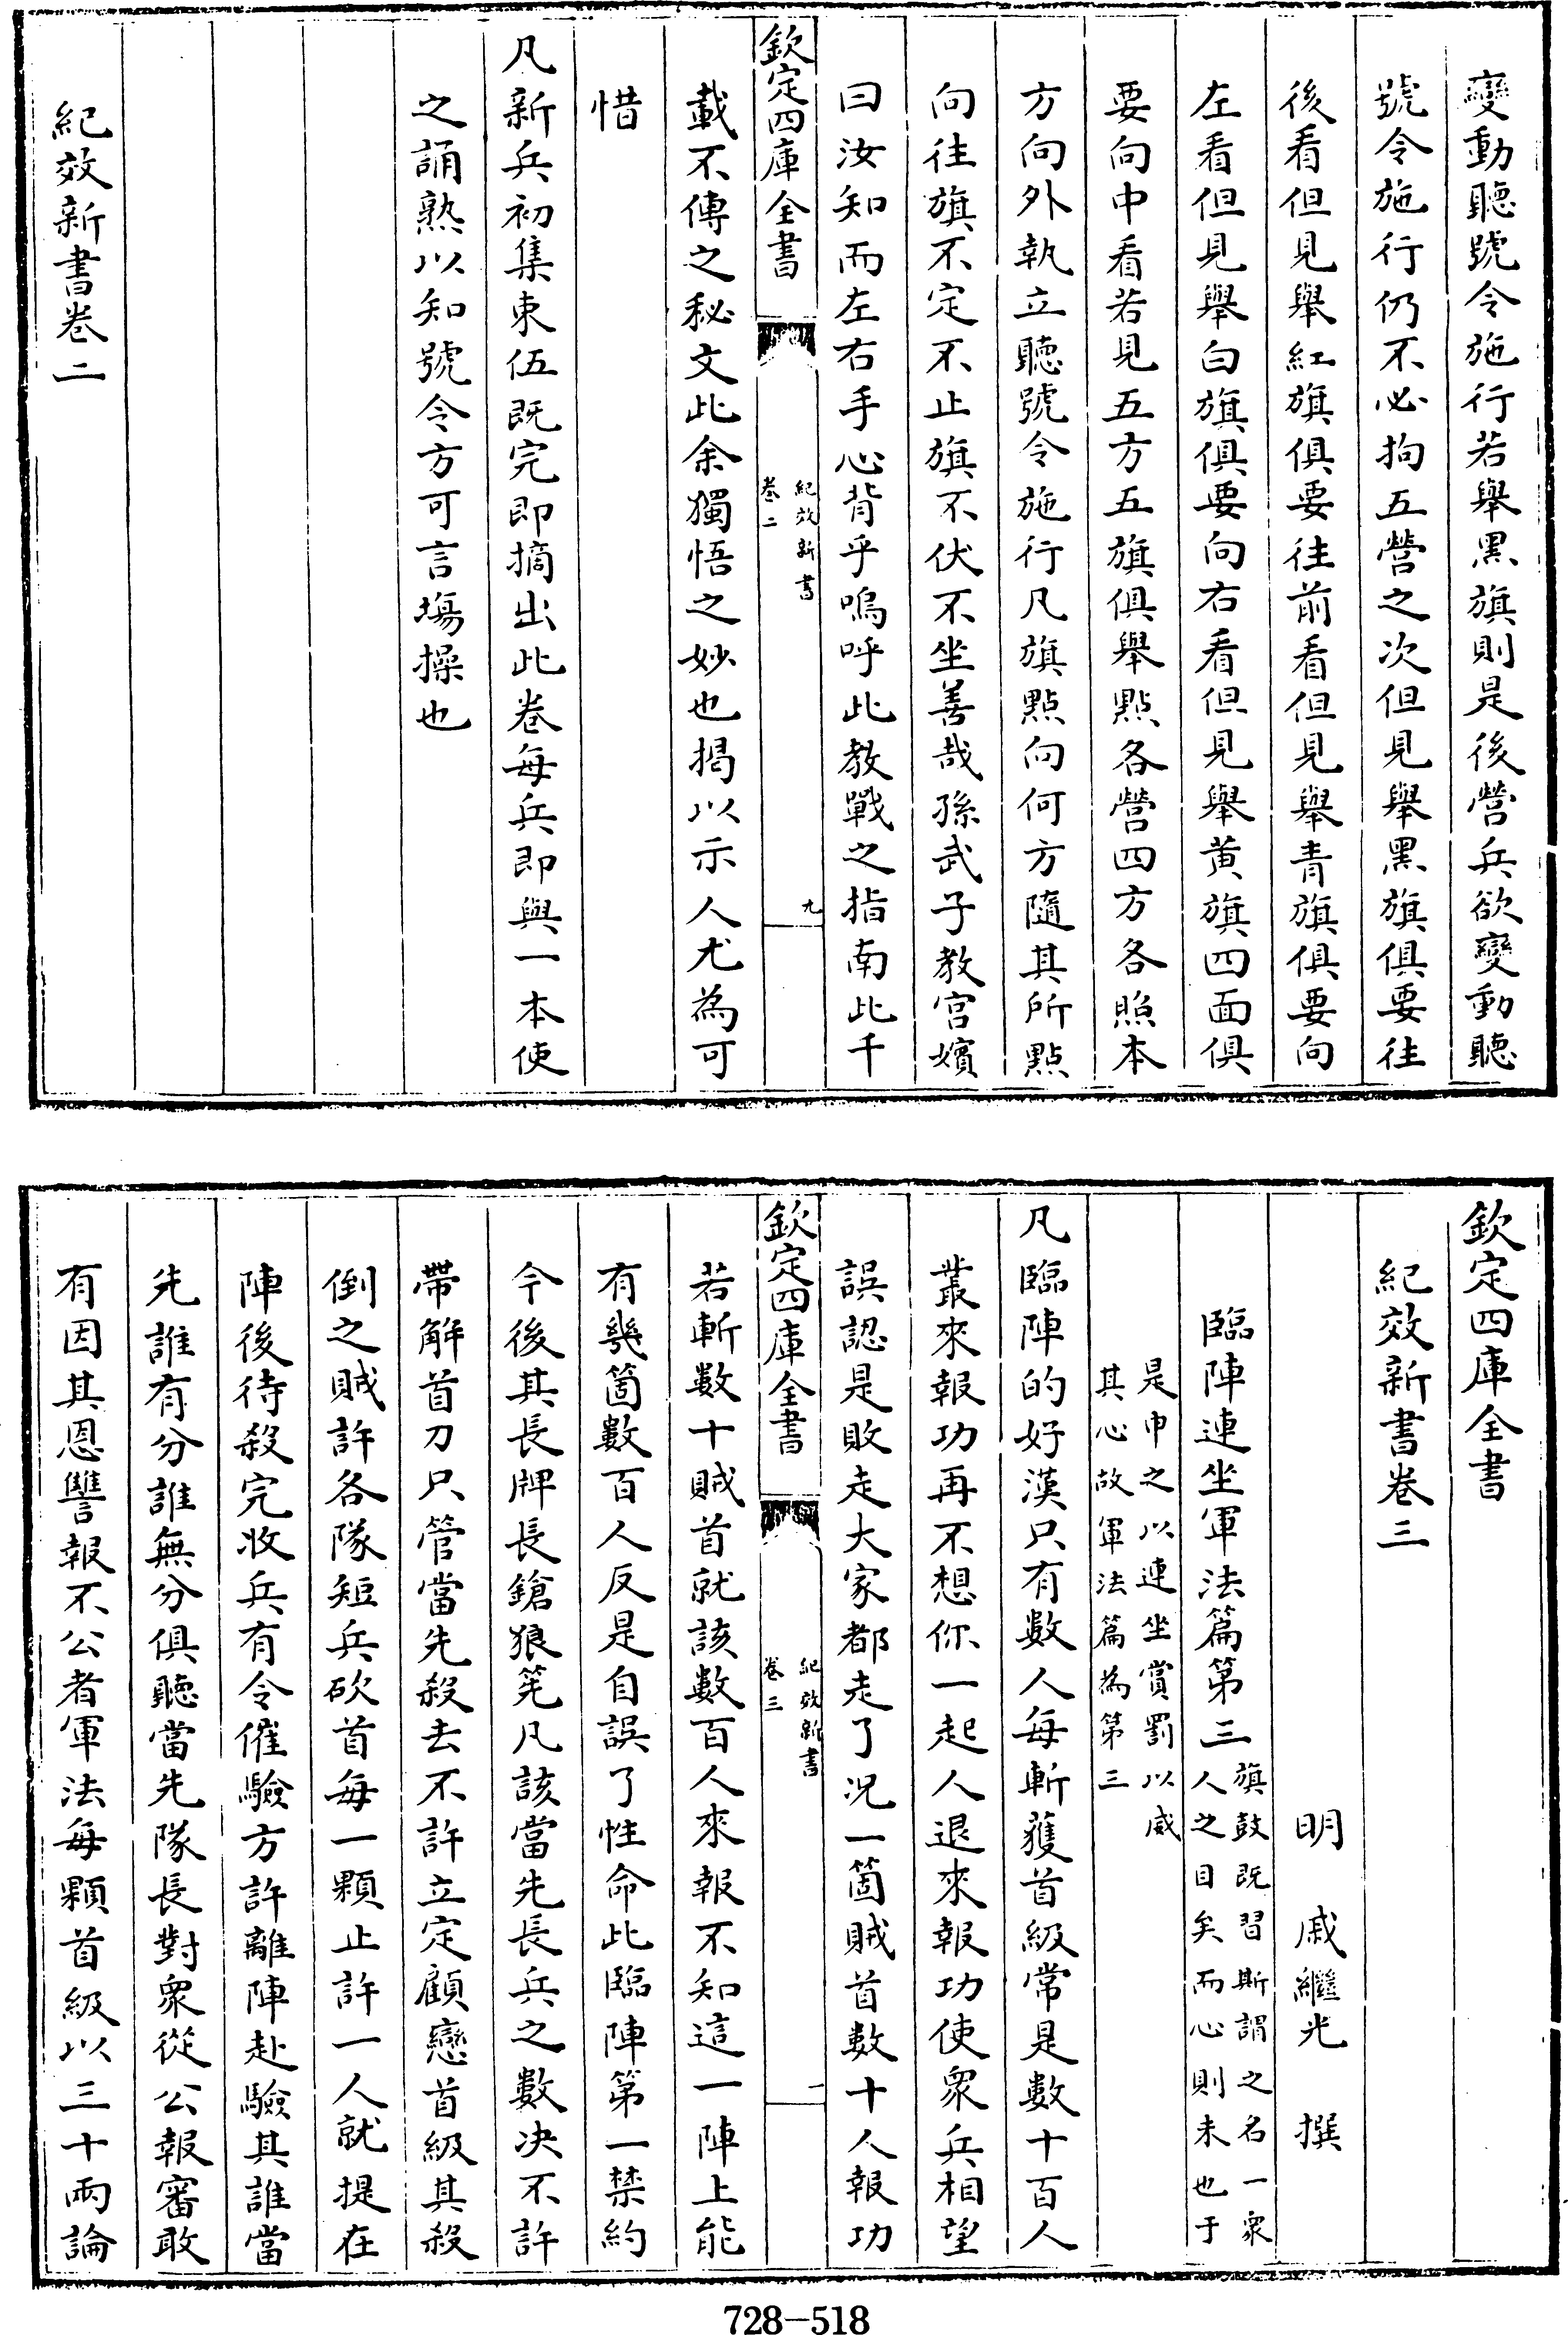 變動聽號令施行若舉黑旗則是後營兵欲變動聽
號令施行仍不必拘五營之次但見舉黑旗俱要往
後看但見舉紅旗俱要往前看但見舉青旗俱要向
左看但見舉白旗俱要向右看但見舉黃旗四面俱
要向中看若見五方五旗俱舉點各營四方各照本
方向外執立聽號令施行凡旗點向何方隨其所點
向往旗不定不止旗不伏不坐善哉孫武子教宮嬪
曰汝知而左右手心背乎嗚呼此教戰之指南此千
欽定四庫全書
紀效新書
卷二
九
載不傳之秘文此余獨悟之妙也揭以示人尤為可
惜
凡新兵初集束伍既完即摘出此卷每兵即與一本使
之誦熟以知號令方可言塲操也
紀效新書卷二
欽定四庫全書
紀效新書卷三
明 戚繼光 撰
臨陣連坐軍法篇第三
旗鼓既習斯謂之名一衆
人之目矣而心則未也于
是申之以連坐賞罰以威
其心故軍法篇為第三
凡臨陣的好漢只有數人每斬獲首級常是數十百人
叢來報功再不想你一起人退來報功使衆兵相望
誤認是敗走大家都走了况一箇賊首數十人報功
欽定四庫全書
紀效新書
卷三
一
若斬數十賊首就該數百人來報不知這一陣上能
有幾箇數百人反是自誤了性命此臨陣第一禁約
今後其長牌長鎗狼筅凡該當先長兵之數决不許
帶解首刀只管當先殺去不許立定顧戀首級其殺
倒之賊許各隊短兵砍首每一顆止許一人就提在
陣後待殺完收兵有令催驗方許離陣赴驗其誰當
先誰有分誰無分俱聽當先隊長對衆從公報審敢
有因其恩讐報不公者軍法每顆首級以三十兩論
728-518